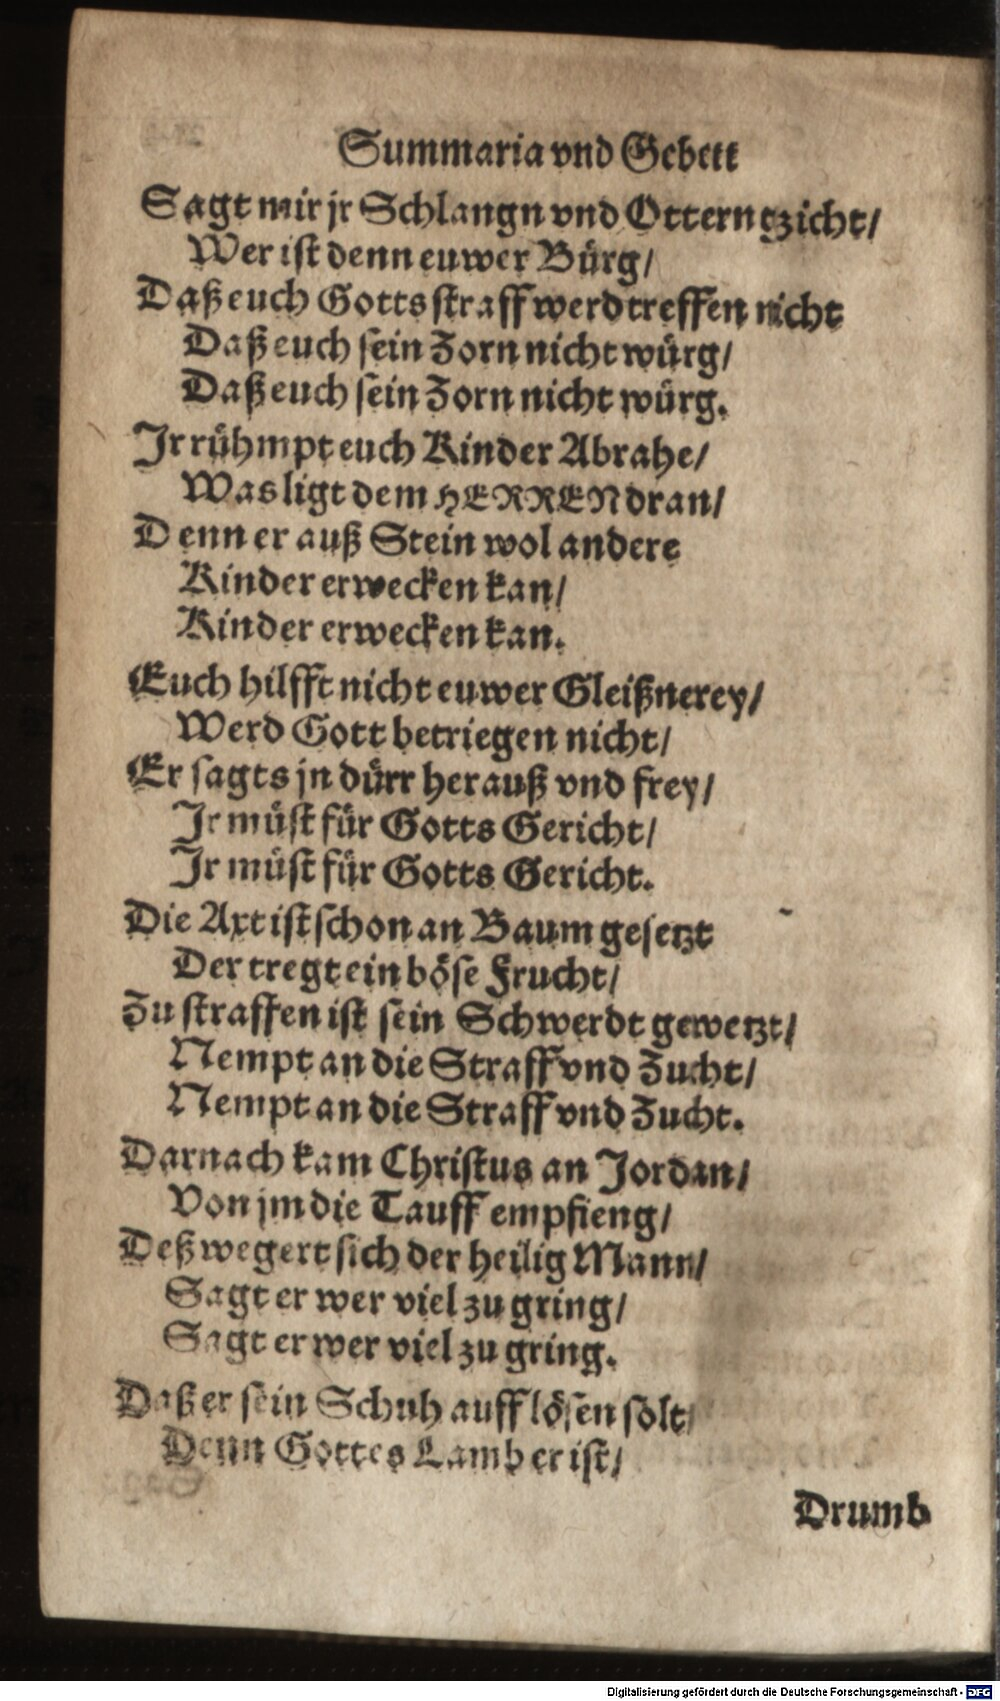 Summaria vnd Gebett
Sagt mir jr Schlangn vnd Otterntzicht/
Wer ist denn euwer Bürg/
Daß euch Gotts straff werd treffen nicht
Daß euch sein Zorn nicht würg/
Daß euch sein Zorn nicht würg.
Jr rühmpt euch Kinder Abrahe/
Was ligt dem HERREN dran/
Denn er auß Stein wol andere
Kinder erwecken kan/
Kinder erwecken kan.
Euch hilfft nicht euwer Gleißnerey/
Werd Gott betriegen nicht/
Er sagts jn dürr herauß vnd frey/
Jr müst für Gotts Gericht/
Jr müst für Gotts Gericht.
Die Axt ist schon an Baum gesetzt
Der tregt ein böse Frucht/
Zu straffen ist sein Schwerdt gewetzt/
Nempt an die Straff vnd Zucht/
Nempt an die Straff vnd Zucht.
Darnach kam Christus an Jordan/
Von jm die Tauff empfieng/
Deß wegert sich der heilig Mann/
Sagt er wer viel zu gring/
Sagt er wer viel zu gring.
Daß er sein Schuh auff lösen solt/
Denn Gottes Lamb er ist/
Drumb
Digitalisierung gefördert durch die Deutsche Forschungsgemeinschaft - DFG